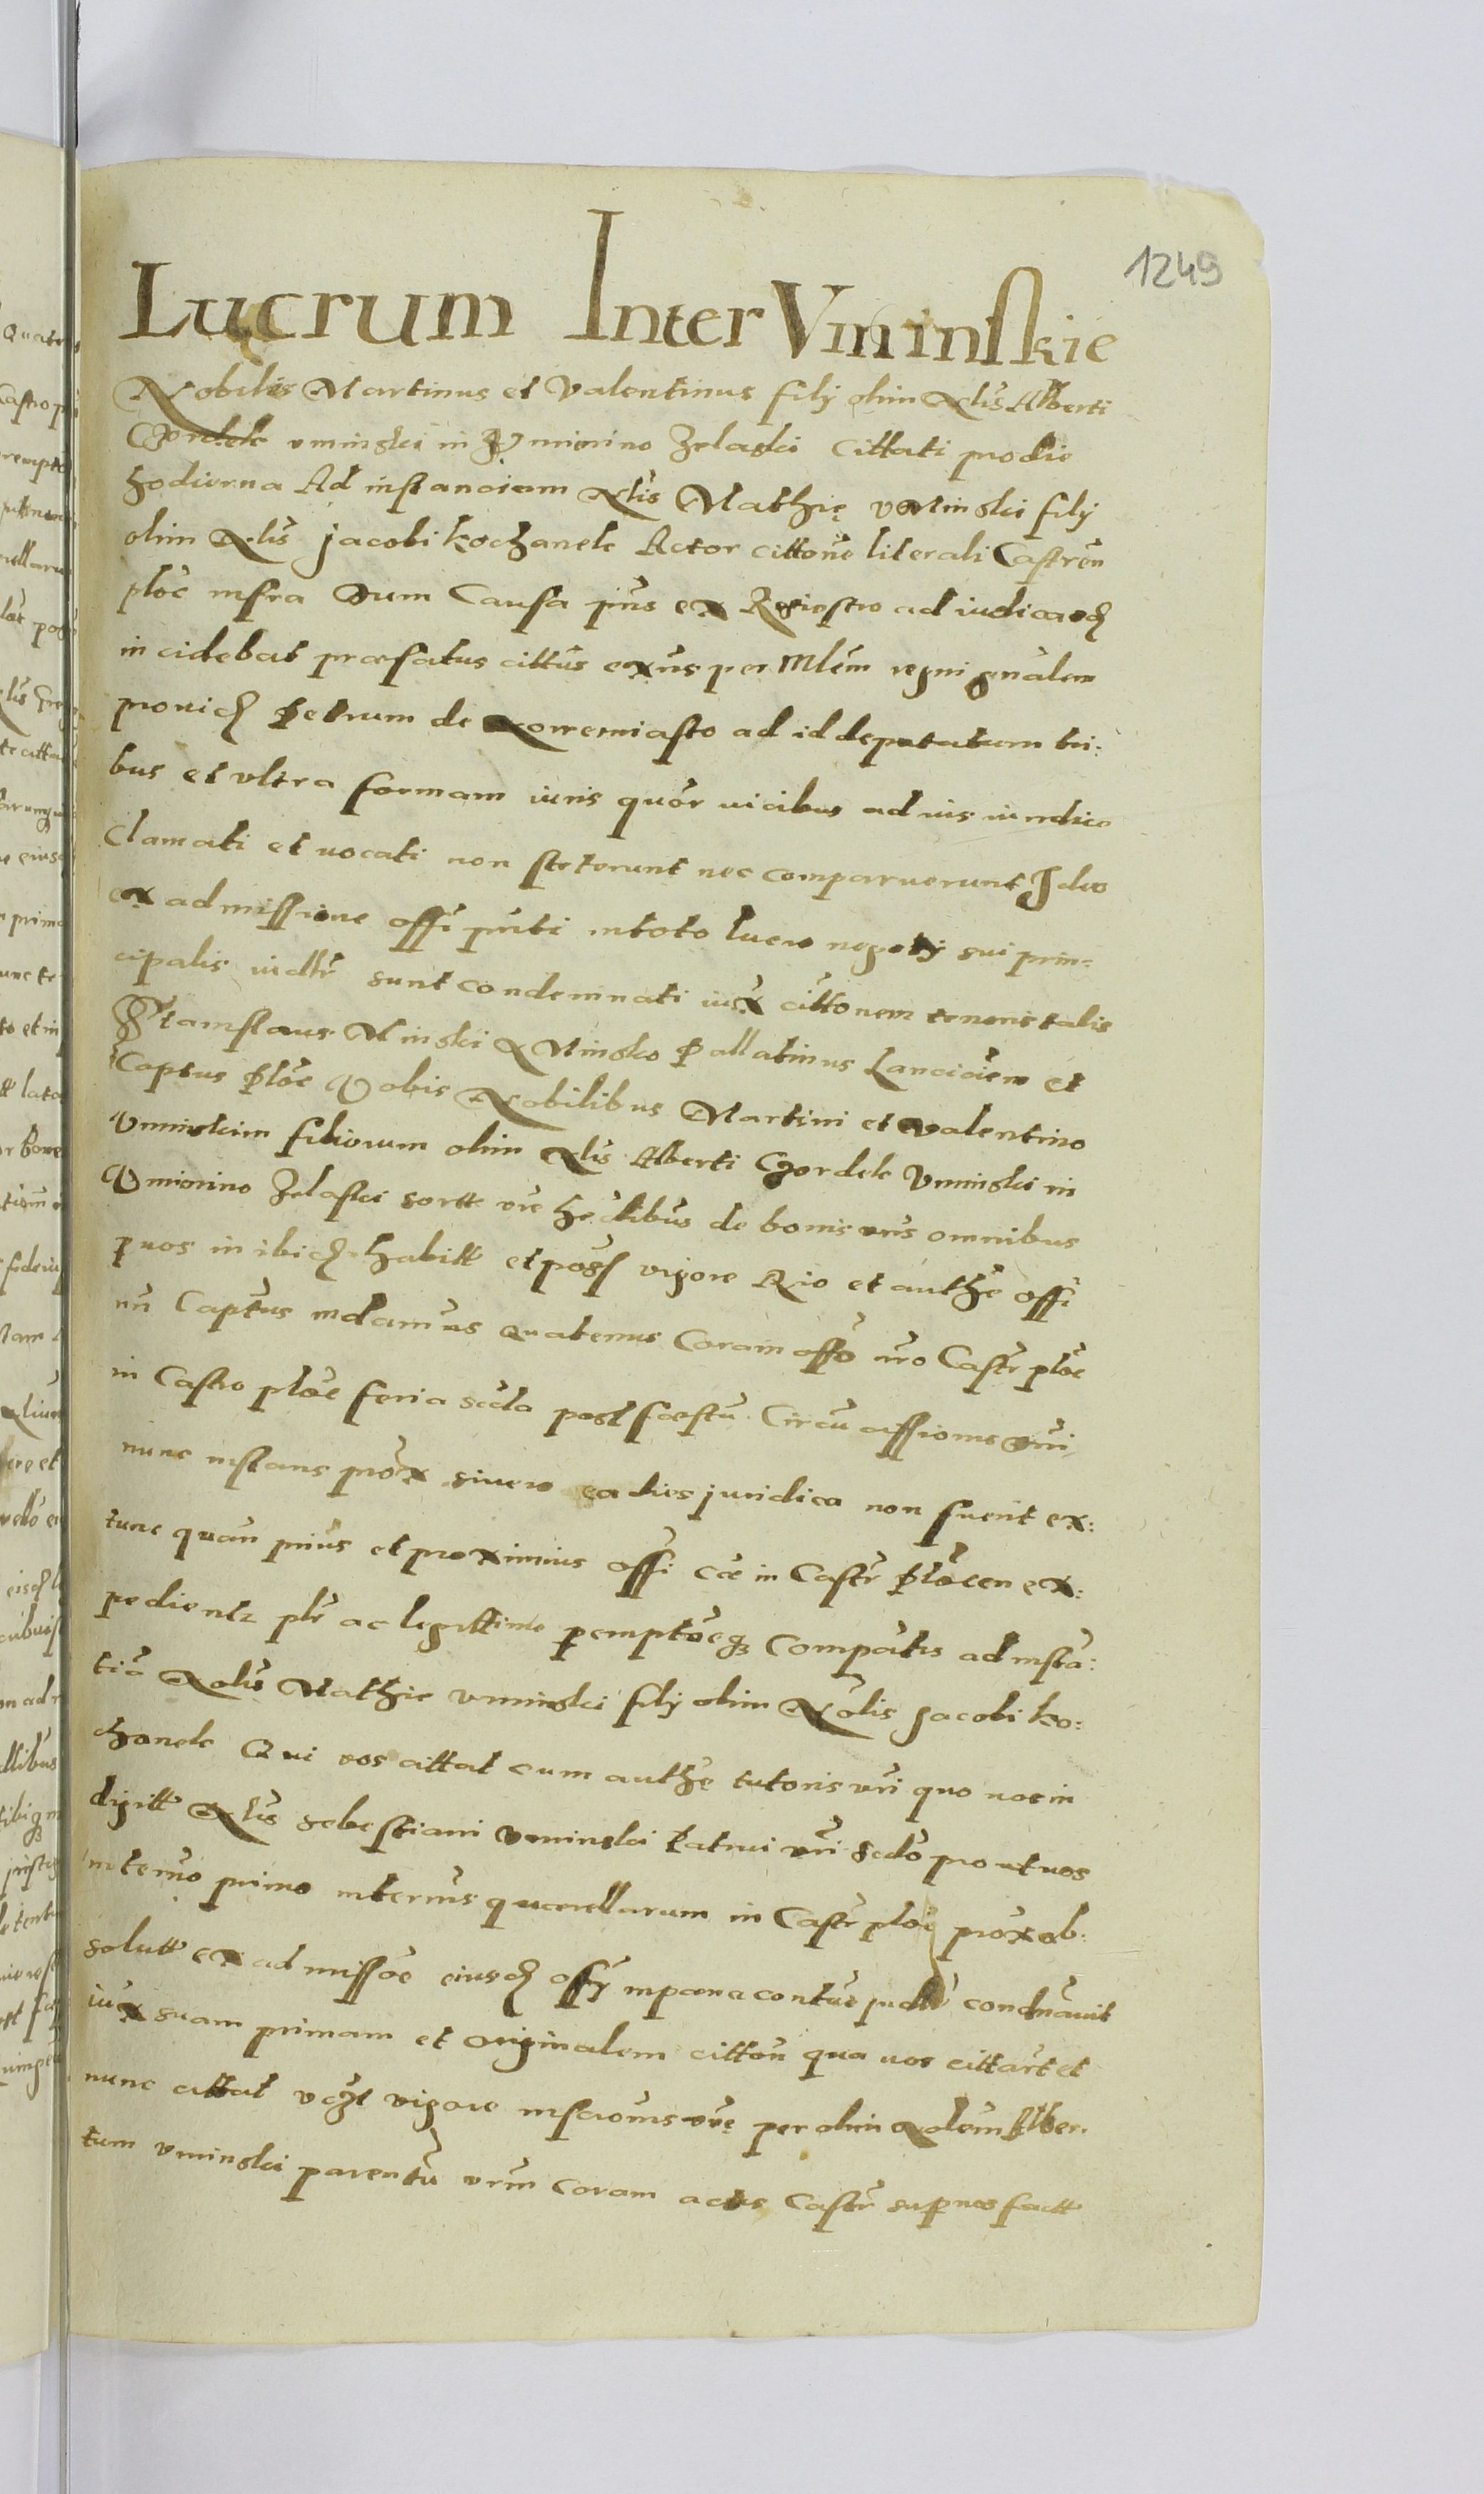 1249
Lucrum Inter Vminskie
Nobiles Martinus et Valentinus filij olim Nlis Alberti
Gordek vminski in Vminino Zelaski Cittati pro die
hodierna Ad instanciam Nlis Mathię vminski filij
olim Nlis Jacobi Kochanek Actor cittone literali Castren
ploc infra Dum Causa pns ex Regestro ad iudicand
incidebat praefatus cittus exns per Mlem regni gnalem
prouid Petrum de Nowemiasto ad id deputatum tri:
bus et vltra formam iuris quor vicibus ad ius iuridice
Clamati et vocati non steterunt nec comparuerunt Ideo
ex admissione offi pnti in toto lucro negotij sui prin:
cipalis iudlr sunt condemnati iux cittonem tenoris talis
Stanislaus Minski de Minsko Pallatinus Lanciciem et
Captus Ploc Vobis Nobilibus Martini et Valentino
Vminskim filiorum olim Nlis Alberti Gordek Vminski in
Vminino Zelaski sortt vre hedibus de bonis vris omnibus
p vos in ibid habitt et poss vigore Rio et authe offi
nri Captus mdamus quatenus Coram offo nro Castr ploc
in Castro ploc feria scda post foestu Circucissionis Dni
nunc instans prox siuero ea dies juridica non fuerit ex:
tunc quam prius et proximius offi cae in Castr Plocen ex:
pedientz plr ac legittime pemptoeq Compatis ad insta:
tia Nolis Mathie vminski filij olim Nolis Jacobi Ko:
chanek Qui vos cittat cum authe tutoris vri quo nos in
digitt Nlis sebestiani vminski Patrui vri sedo prout vos
in termo primo in termis querellarum in Castr ploc prox ob:
solutt ex admissoe eiusd offy in poena contue judlr condnauit
iux suam primam et originalem citton qua vos cittart et
nunc cittat videlt vigore inscronis vre per olim Nolem Alber
tum vminski parentu vrm Coram actis Castr sup vos fact